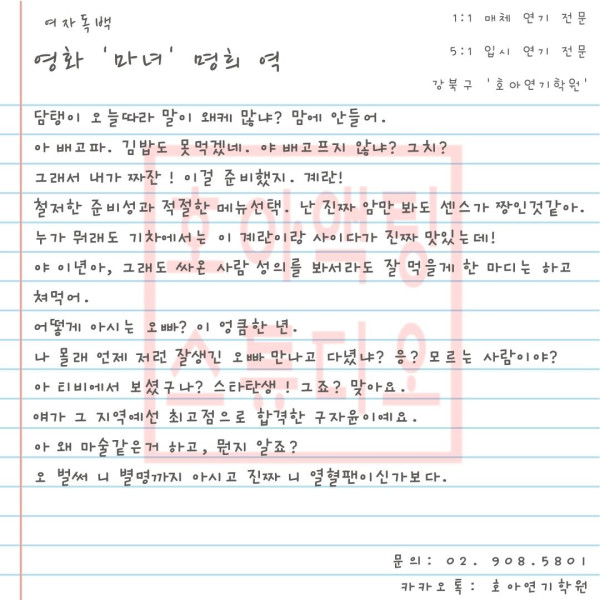 여자독백
1:1 매체 연기 전문
영화 '마녀' 명희 역
5:1 입시 연기 전문
강북구 '호아연기학원'
담탱이 오늘따라 말이 왜케 많냐? 맘에 안들어.
아 배고파. 김밥도 못먹겠네. 야 배고프지 않냐? 그치?
그래서 내가 짜잔 ! 이걸 준비했지. 계란!
철저한 준비성과 적절한 메뉴선택. 난 진짜 암만 봐도 센스가 짱인것같아.
누가 뭐래도 기차에서는 이 계란이랑 사이다가 진짜 맛있는데!
야 이년아, 그래도 싸온 사람 성의를 봐서라도 잘 먹을게 한 마디는 하고
쳐먹어.
어떻게 아시는 오빠? 이 엉큼한 년.
나 몰래 언제 저런 잘생긴 오빠 만나고 다녔냐? 응? 모르는 사람이야?
아 티비에서 보셨구나? 스타탄생 ! 그죠? 맞아요.
얘가 그 지역예선 최고점으로 합격한 구자윤이예요.
아 왜 마술같은거 하고, 뭔지 알죠?
오 벌써 니 별명까지 아시고 진짜 니 열혈팬이신가보다.
호아액팅
스튜디오
문의: 02. 908.5801
카카오톡: 호아연기학원